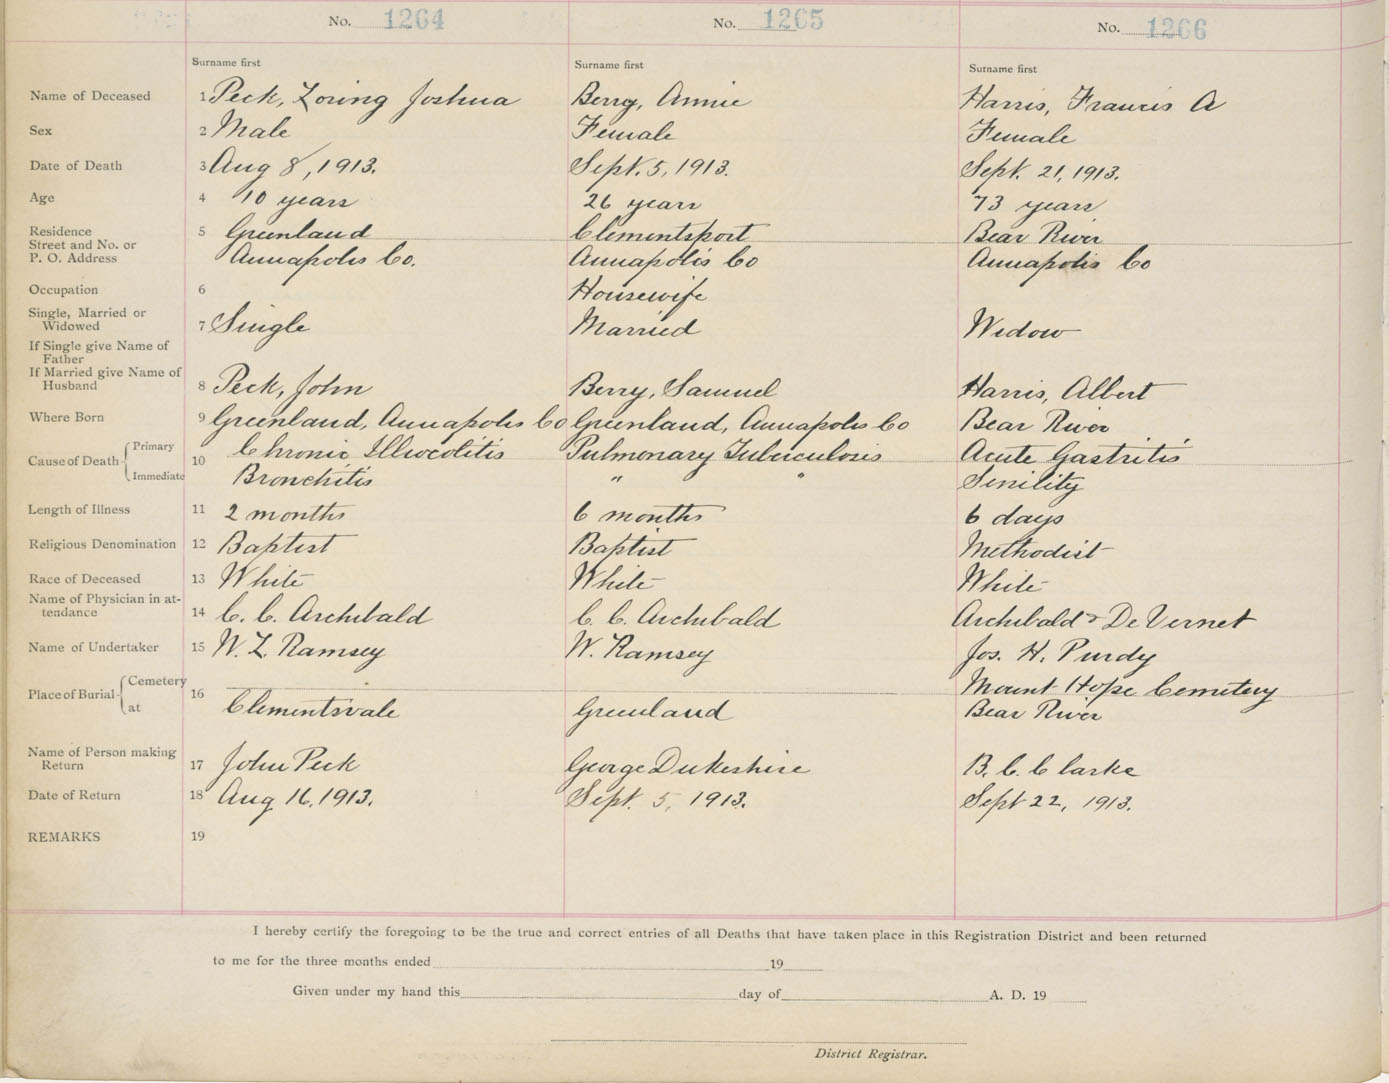 No. 1264 No. 1265 No. 1266
Surname first Surname first Surname first
Name of Deceased 1 Peck, Loring Joshua Berry, Annie Harris, Francis A
Sex 2 Male Female Female
Date of Death 3 Aug 8, 1913. Sept. 5, 1913. Sept. 21, 1913.
Age 4 10 years 26 years 73 years
Residence 5 Greenland Clementsport Bear River
Street and No. or
P. O. Address Annapolis Co. Annapolis Co Annapolis Co
Occupation 6 Housewife
Single, Married or
Widowed 7 Single Married Widow
If Single give Name of
Father
If Married give Name of
Husband 8 Peck, John Berry, Samuel Harris, Albert
Where Born 9 Greenland, Annapolis Co Greenland, Annapolis Co Bear River
Primary Chronic Illiocolitis Pulmonary Tuberculosis Acute Gastritis
Cause of Death 10
Immediate Bronchitis " " Senility
Length of Illness 11 2 months 6 months 6 days
Religious Denomination 12 Baptist Baptist Methodist
Race of Deceased 13 White White White
Name of Physician in at-
tendance 14 C. C. Archibald C. C. Archibald Archibald & DeVernet
Name of Undertaker 15 W. L. Ramsey W. Ramsey Jos. H. Purdy
Cemetery Mount Hope Cemetery
Place of Burial 16
at Clementsvale Greenland Bear River
Name of Person making
Return 17 John Peck George Dukeshire B. C. Clarke
Date of Return 18 Aug 16, 1913. Sept. 5, 1913. Sept 22, 1913.
REMARKS 19
I hereby certify the foregoing to be the true and correct entries of all Deaths that have taken place in this Registration District and been returned
to me for the three months ended 19
Given under my hand this day of A. D. 19
District Registrar.